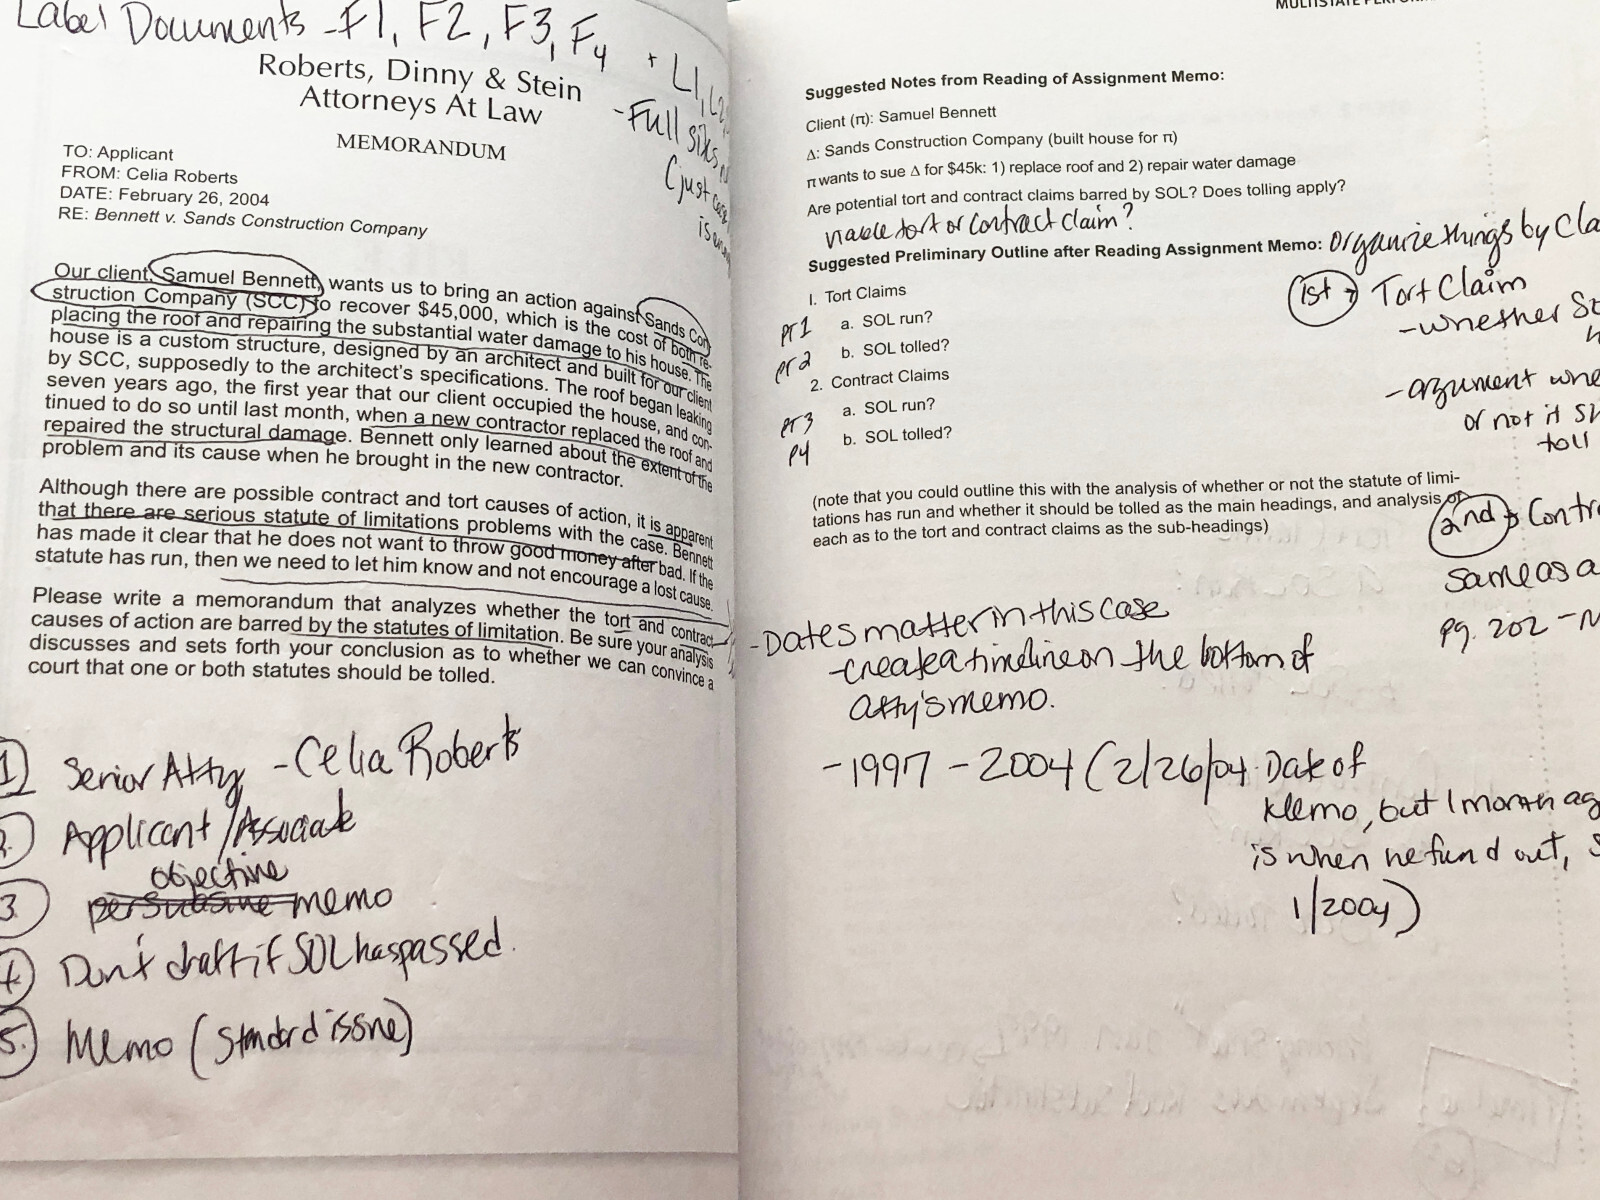 Label Documents - F1, F2, F3, F4
+ L1, L2,
- Full
(just
Roberts, Dinny & Stein
Attorneys At Law
MEMORANDUM
TO: Applicant
FROM: Celia Roberts
DATE: February 26, 2004
RE: Bennett v. Sands Construction Company
Our client, Samuel Bennett, wants us to bring an action against Sands Con-
struction Company (SCC) to recover $45,000, which is the cost of both re-
placing the roof and repairing the substantial water damage to his house. The
house is a custom structure, designed by an architect and built for our client
by SCC, supposedly to the architect's specifications. The roof began leaking
seven years ago, the first year that our client occupied the house, and con-
tinued to do so until last month, when a new contractor replaced the roof and
repaired the structural damage. Bennett only learned about the extent of the
problem and its cause when he brought in the new contractor.
Although there are possible contract and tort causes of action, it is apparent
that there are serious statute of limitations problems with the case. Bennett
has made it clear that he does not want to throw good money after bad. If the
statute has run, then we need to let him know and not encourage a lost cause.
Please write a memorandum that analyzes whether the tort and contract
causes of action are barred by the statutes of limitation. Be sure your analysis
discusses and sets forth your conclusion as to whether we can convince a
court that one or both statutes should be tolled.
1) Senior Atty - Celia Roberts
2. Applicant/Associate
objective
3. persuasive memo
4. Don't draft if SOL has passed.
5. Memo (Standard issue)
Suggested Notes from Reading of Assignment Memo:
Client (π): Samuel Bennett
Δ: Sands Construction Company (built house for π)
π wants to sue Δ for $45k: 1) replace roof and 2) repair water damage
Are potential tort and contract claims barred by SOL? Does tolling apply?
viable tort or contract claim?
Suggested Preliminary Outline after Reading Assignment Memo: organize things by
1. Tort Claims
pr 1 a. SOL run?
pr 2 b. SOL tolled?
2. Contract Claims
pr 3 a. SOL run?
p4 b. SOL tolled?
1st → Tort Claim
- whether
- argument
or not it
toll
(note that you could outline this with the analysis of whether or not the statute of limi-
tations has run and whether it should be tolled as the main headings, and analysis of
each as to the tort and contract claims as the sub-headings)
2nd →
same as a
pg. 202 -
- Dates matter in this case
- create a timeline on the bottom of
atty's memo.
- 1997 - 2004 (2/26/04 Date of
Memo, but 1 month
is when he found out,
1/2004)